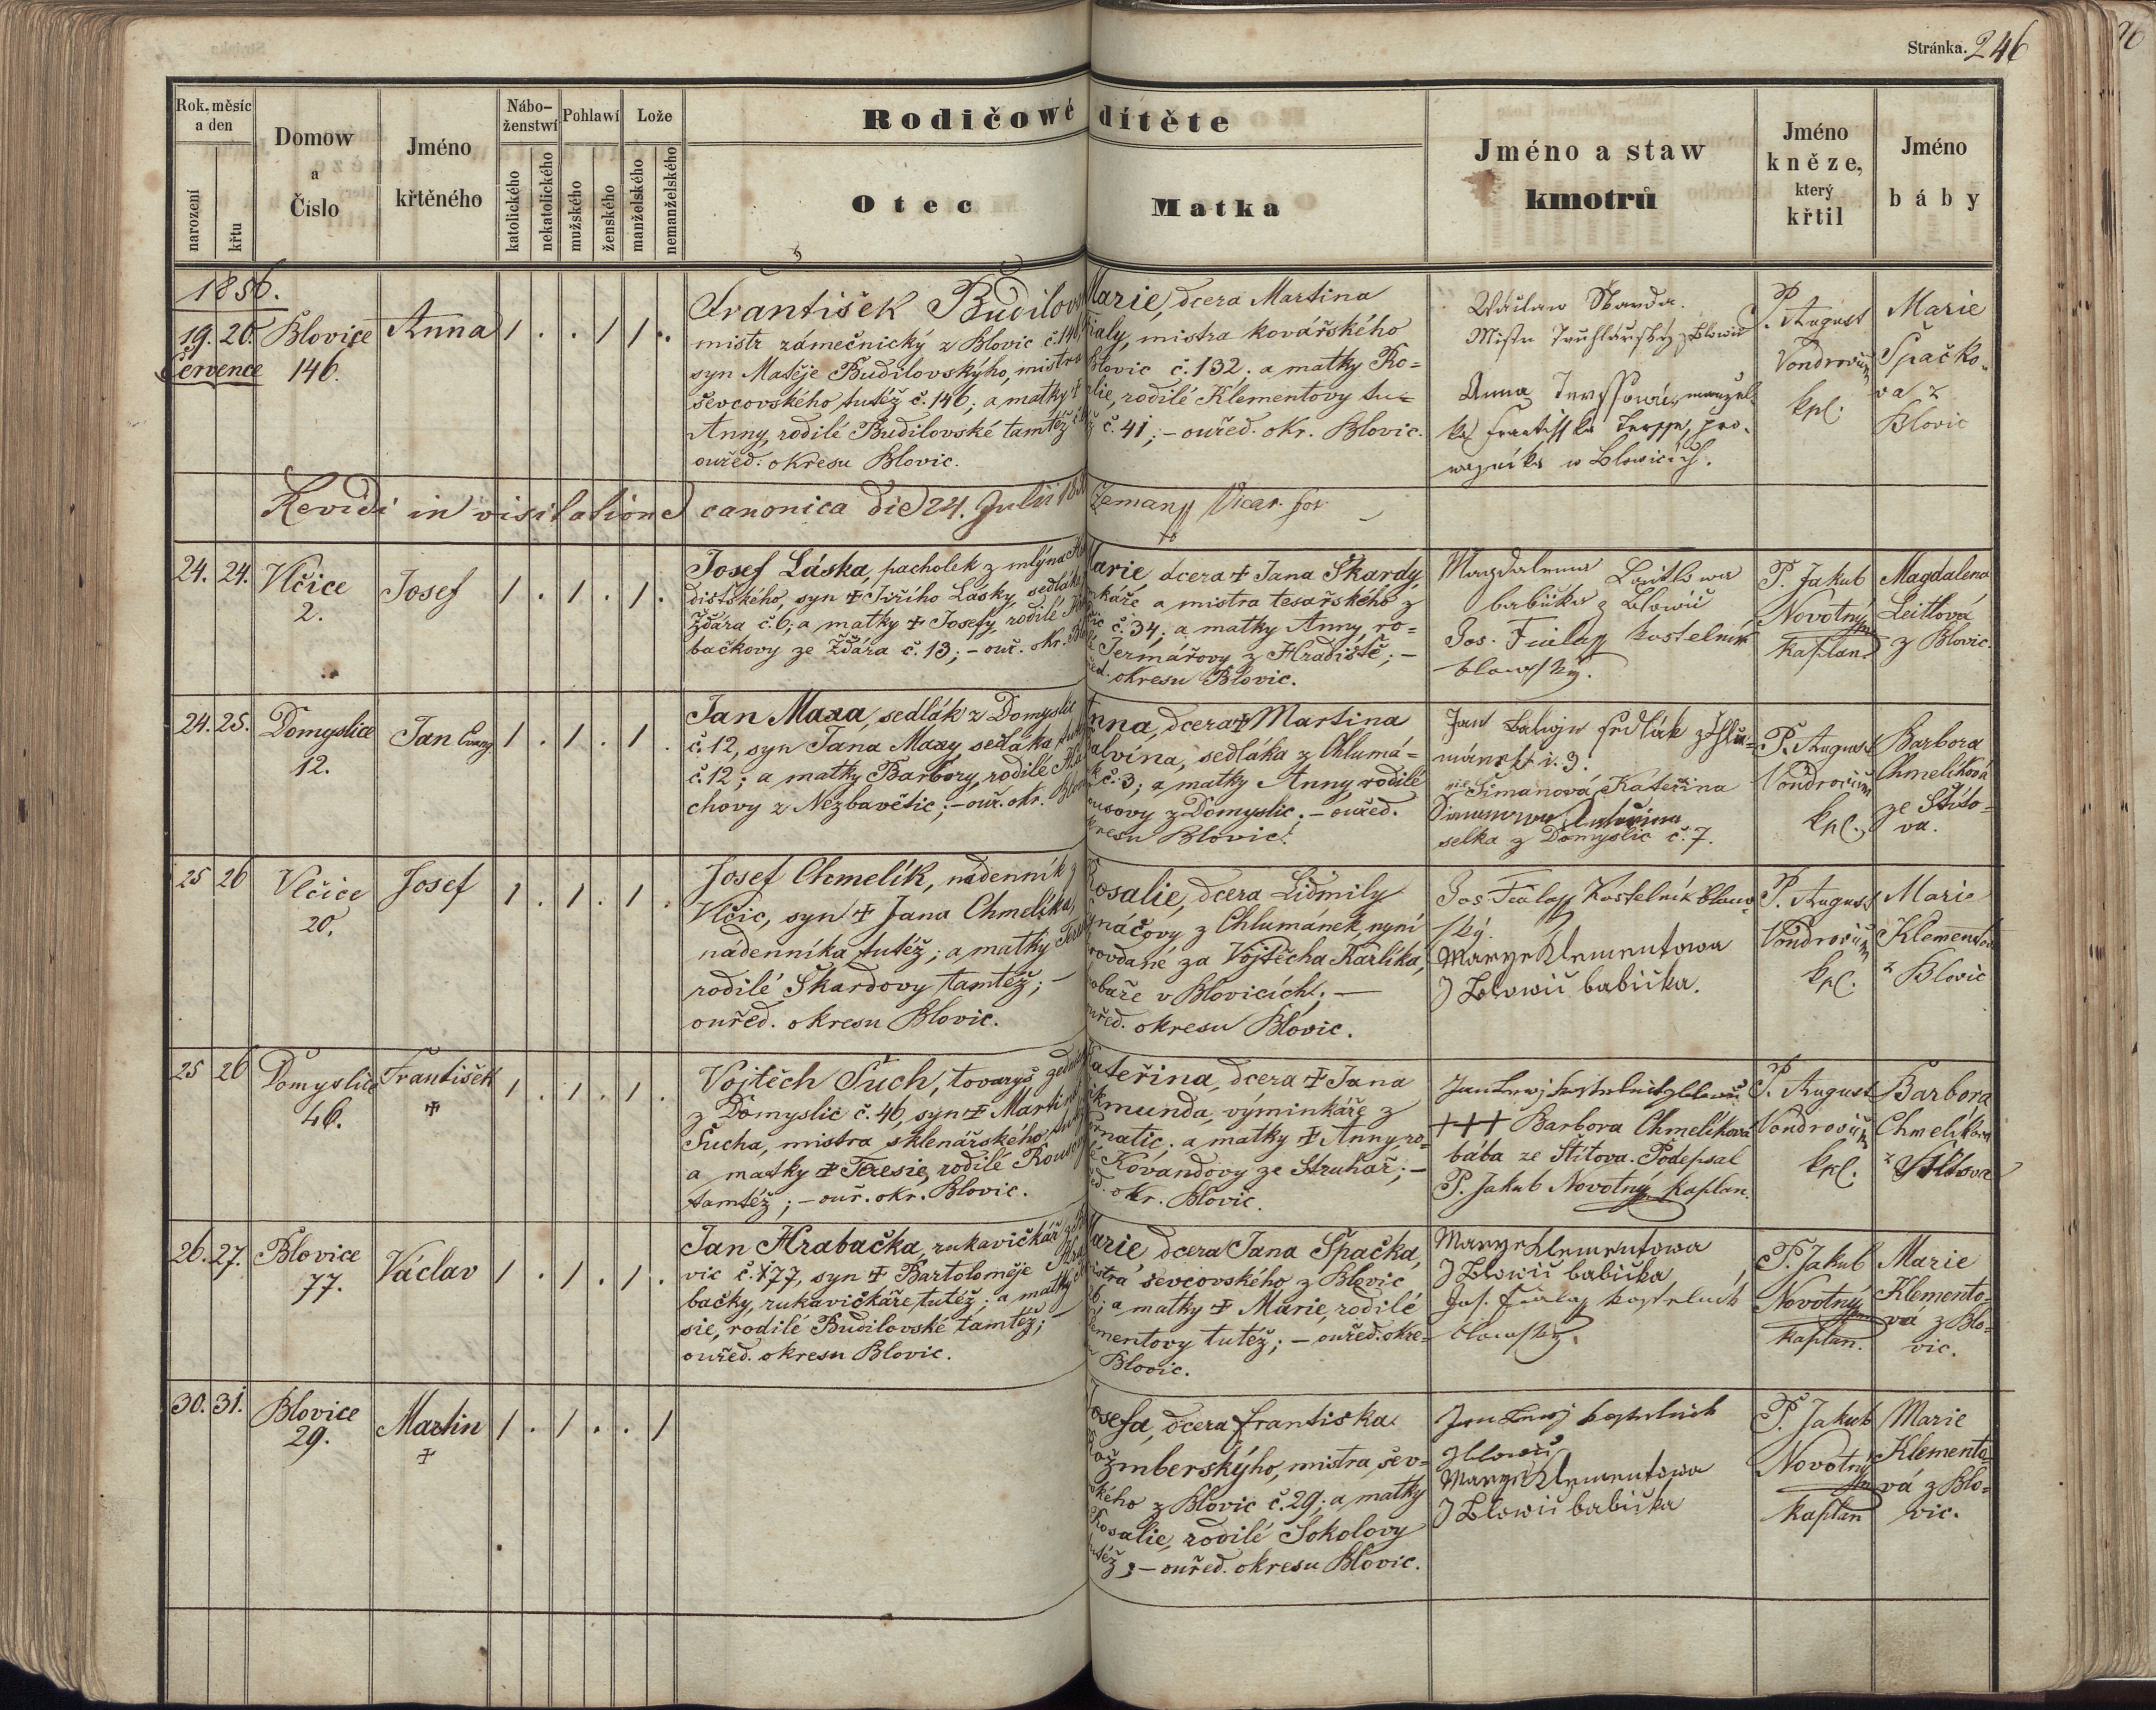 Stránka. 246
Rok, měsíc a den
narození
křtu
Domow a Čislo
Jméno křtěného
Nábo-ženstwí
katolického
nekatolického
Pohlawí
mužského
ženského
Lože
manželského
nemanželského
Rodičowé dítěte
Otec
Matka
Jméno a staw kmotrů
Jméno kněze, který křtil
Jméno báby
1856.
19. 20. Července
Blovice 146.
Anna
1 . . 1 1 .
František Budilovs
mistr zámečnický z Blovic č. 146,
syn Matěje Budilovskýho, mistra
ševcovského tutéž č. 146; a matky
Anny, rodilé Budilovské tamtéž
ouřed. okresu Blovic.
Marie, dcera Martina
Fialy, mistra kovářského
Blovic č. 132; a matky Ro=
alie, rodilé Klementovy tu=
ž č. 41; – ouřed. okr. Blovic.
Wáclaw
Mistr Truhlářský z Blowic
Anna manžel=
ka Frantisska pro=
wazníka w Blowicých.
P. August
Vondrovic
kpl.
Marie
Špačko=
va z
Blovic
Revidi in visitatione canonica die 24. Julii Zeman Vicar. for
24. 24.
Vlčice
2.
Josef
1 . 1 . 1 .
Josef Láska, pacholek z mlýna
dištského, syn + Jiřího Lásky, sedláka
Žďára č. 6; a matky + Josefy, rodilé
bačkovy ze Žďára č. 13; – ouř. okr.
Marie, dcera + Jana Škardy,
nkáře a mistra tesařského z
č. 34; a matky Anny, ro=
Jermářovy z Hradiště; –
okresu Blovic.
Magdalena Laitlowa
babička z Blowic
Jos. Fiala kostelník
blowský.
P. Jakub
Novotný
kaplan.
Magdalena
Leitlová
z Blovic.
24. 25.
Domyslice
12.
Jan Evang
1 . 1 . 1 .
Jan Maxa, sedlák z Domyslic
č. 12, syn Jana Maxy sedláka tutéž
č. 12; a matky Barbory, rodilé
chovy z Nezbavětic; – ouř. okr. Blov
Anna, dcera + Martina
alvína, sedláka z Chlumá=
k č. 3; a matky Anny, rodilé
ousovy z Domyslic; – ouřed.
kresu Blovic.
Jan sedlák z Chlu=
mánek č. 3.
Šimanová Kateřina
selka z Domyslic č. 7.
P. August
Vondrovic
kpl.
Barbora
Chmelíková
ze Štíto=
va.
25 26
Vlčice
20.
Josef
1 . 1 . 1 .
Josef Chmelík, nádenník z
Vlčic, syn + Jana Chmelíka,
nádenníka tutéž; a matky
rodilé Škardovy tamtéž; –
ouřed. okresu Blovic.
Rosalie, dcera Lidmily
gnáčovy z Chlumánek, nyní
rovdané za Vojtěcha Karlíka,
obaře v Blovicích; –
ouřed. okresu Blovic.
Jos. Fiala Kostelník blow=
ský.
Marye Klementowa
z Blowic babička.
P. August
Vondrovic
kpl.
Marie
Klementov
z Blovic
25 26
Domyslice
46.
František
+
1 . 1 . 1 .
Vojtěch Šuch, tovaryš zedn
z Domyslic č. 46, syn + Martina
Šucha, mistra sklenářského, tutéž
a matky + Teresie, rodilé Rousov
tamtéž; – ouř. okr. Blovic.
Kateřina, dcera + Jana
ikmunda, výminkáře z
ornatic; a matky + Anny ro=
é Kovandovy ze Struhař; –
okr. Blovic.
Jan kostelník z blowic
+++ Barbora Chmelíková
bába ze Štítova. Podepsal
P. Jakub Novotný kaplan.
P. August
Vondrovic
kpl.
Barbora
Chmelíková
z Štítova
26. 27.
Blovice
77.
Václav
1 . 1 . 1 .
Jan Hrabačka, rukavičkář z Blo
vic č. 77, syn + Bartoloměje Hra
bačky, rukavičkáře tutéž; a matky
sie, rodilé Budilovské tamtéž; –
ouřed. okresu Blovic.
Marie, dcera Jana Špačka,
mistra ševcovského z Blovic
; a matky + Marie, rodilé
ementovy tutéž; – ouřed. okre=
Blovic.
Marye Klementowa
z Blowic babička
Jos. Fiala kostelník
blowský.
P. Jakub
Novotný
kaplan.
Marie
Klemento=
vá z Blo=
vic.
30. 31.
Blovice
29.
Martin
+
1 . 1 . . 1
Josefa, dcera Františka
ožmberskýho, mistra šev=
ského z Blovic č. 29; a matky
Rosalie, rodilé Sokolovy
tutéž; – ouřed. okresu Blovic.
Jan kostelník
z blowic
Marye Klementowa
z Blowic babička
P. Jakub
Novotný
kaplan
Marie
Klemento=
vá z Blo=
vic.